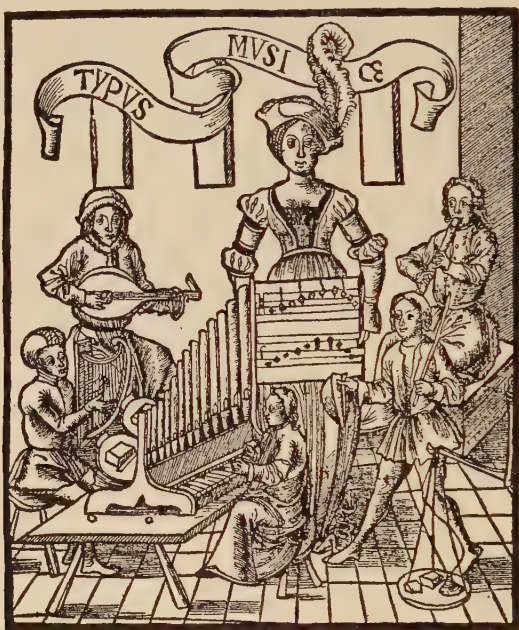 TYPVS
MVSICE